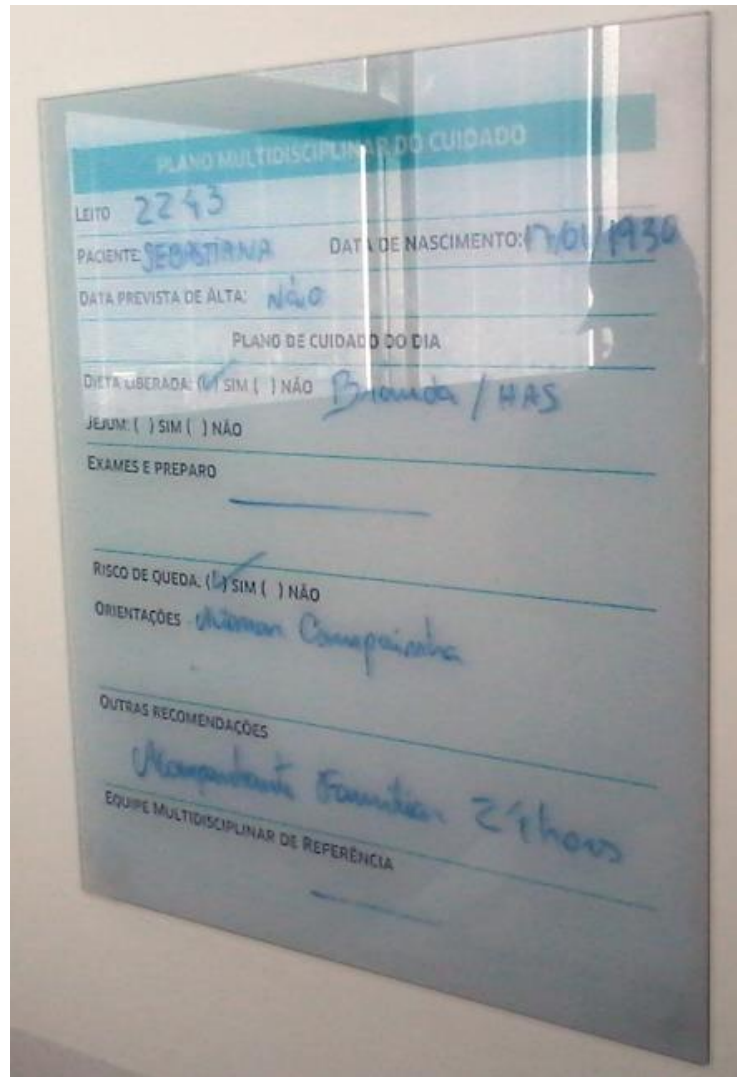 PLANO MULTIDISCIPLINAR DO CUIDADO
LEITO 2243
PACIENTE: SEBASTIANA DATA DE NASCIMENTO: 17/01/1930
DATA PREVISTA DE ALTA: NÃO
PLANO DE CUIDADO DO DIA
DIETA LIBERADA: (✓) SIM ( ) NÃO Branda / HAS
JEJUM: ( ) SIM ( ) NÃO
EXAMES E PREPARO
RISCO DE QUEDA. (✓) SIM ( ) NÃO
ORIENTAÇÕES Acionar Campainha
OUTRAS RECOMENDAÇÕES
Acompanhante Familiar 24 horas
EQUIPE MULTIDISCIPLINAR DE REFERÊNCIA